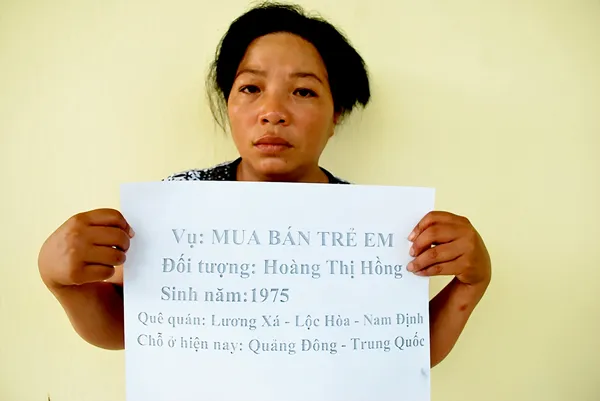 Vụ: MUA BÁN TRẺ EM
Đối tượng: Hoàng Thị Hồng
Sinh năm:1975
Quê quán: Lương Xá - Lộc Hòa - Nam Định
Chỗ ở hiện nay: Quảng Đông - Trung Quốc